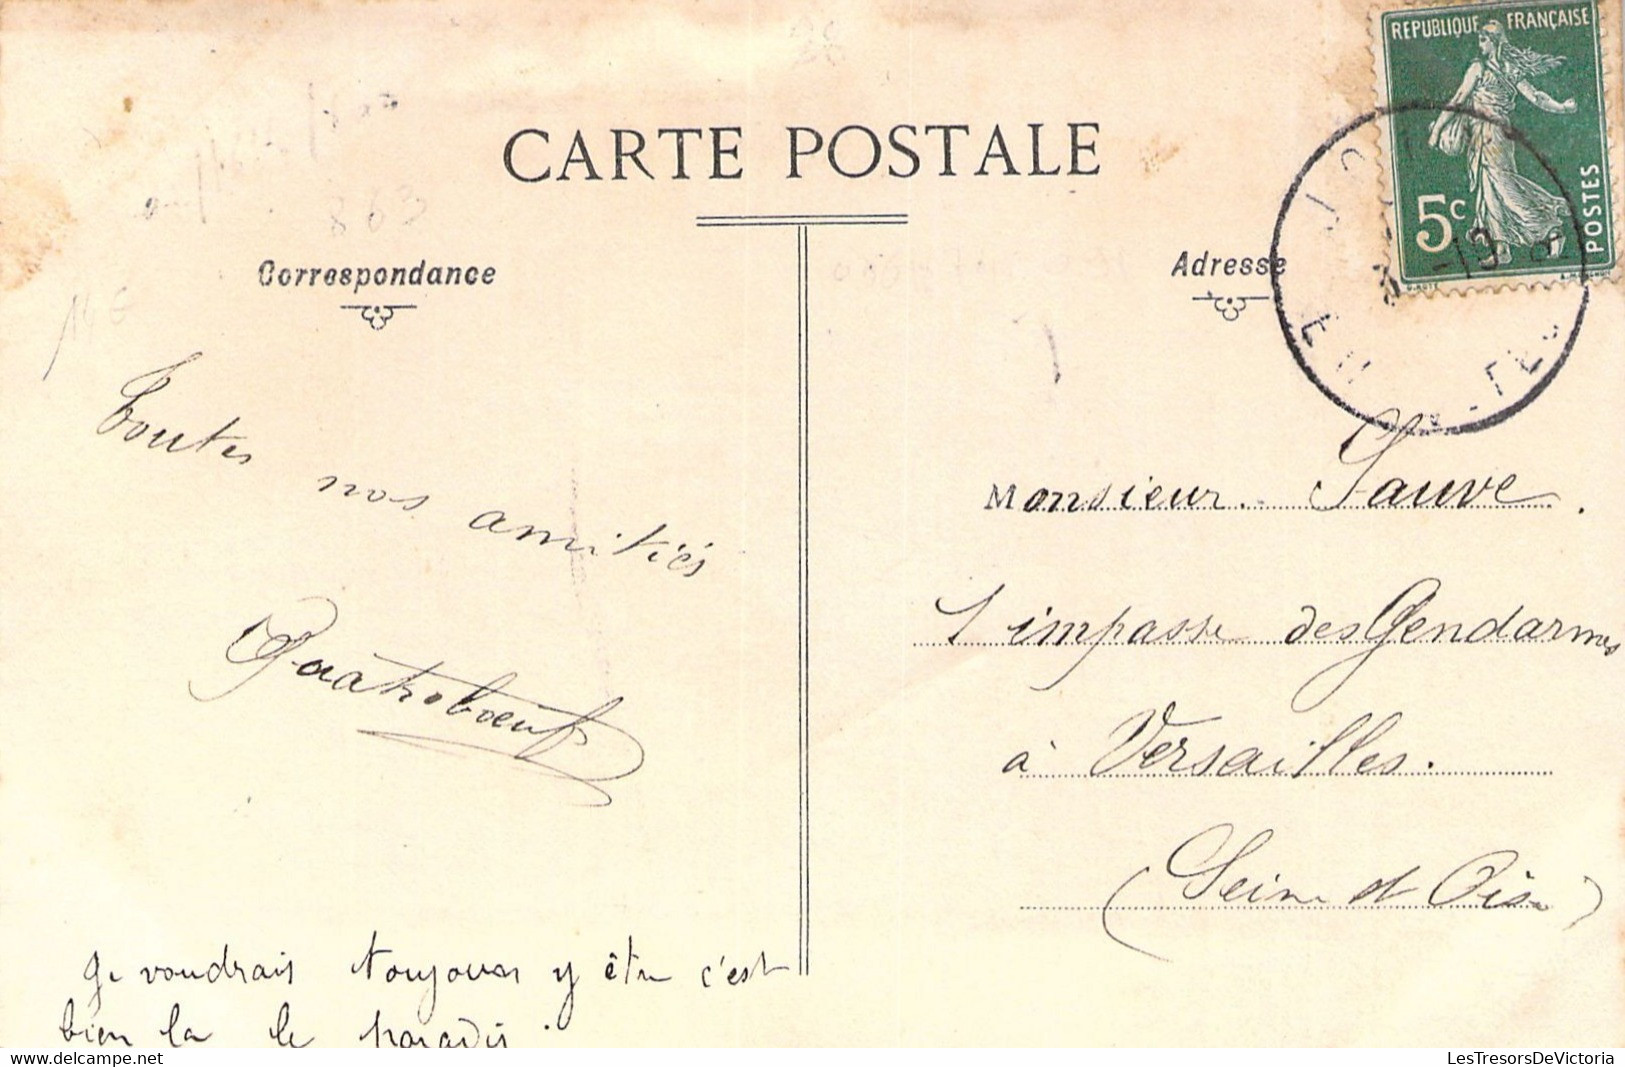 CARTE POSTALE
REPUBLIQUE FRANÇAISE
5c
POSTES
Correspondance
Adresse
14 €
863
Toutes
nos amitiés
Quatreboeuf
Je voudrais toujours y être c'est
bien la le paradis.
Monsieur Sauve.
1 impasse des Gendarmes
à Versailles.
(Seine et Oise)
LesTresorsDeVictoria